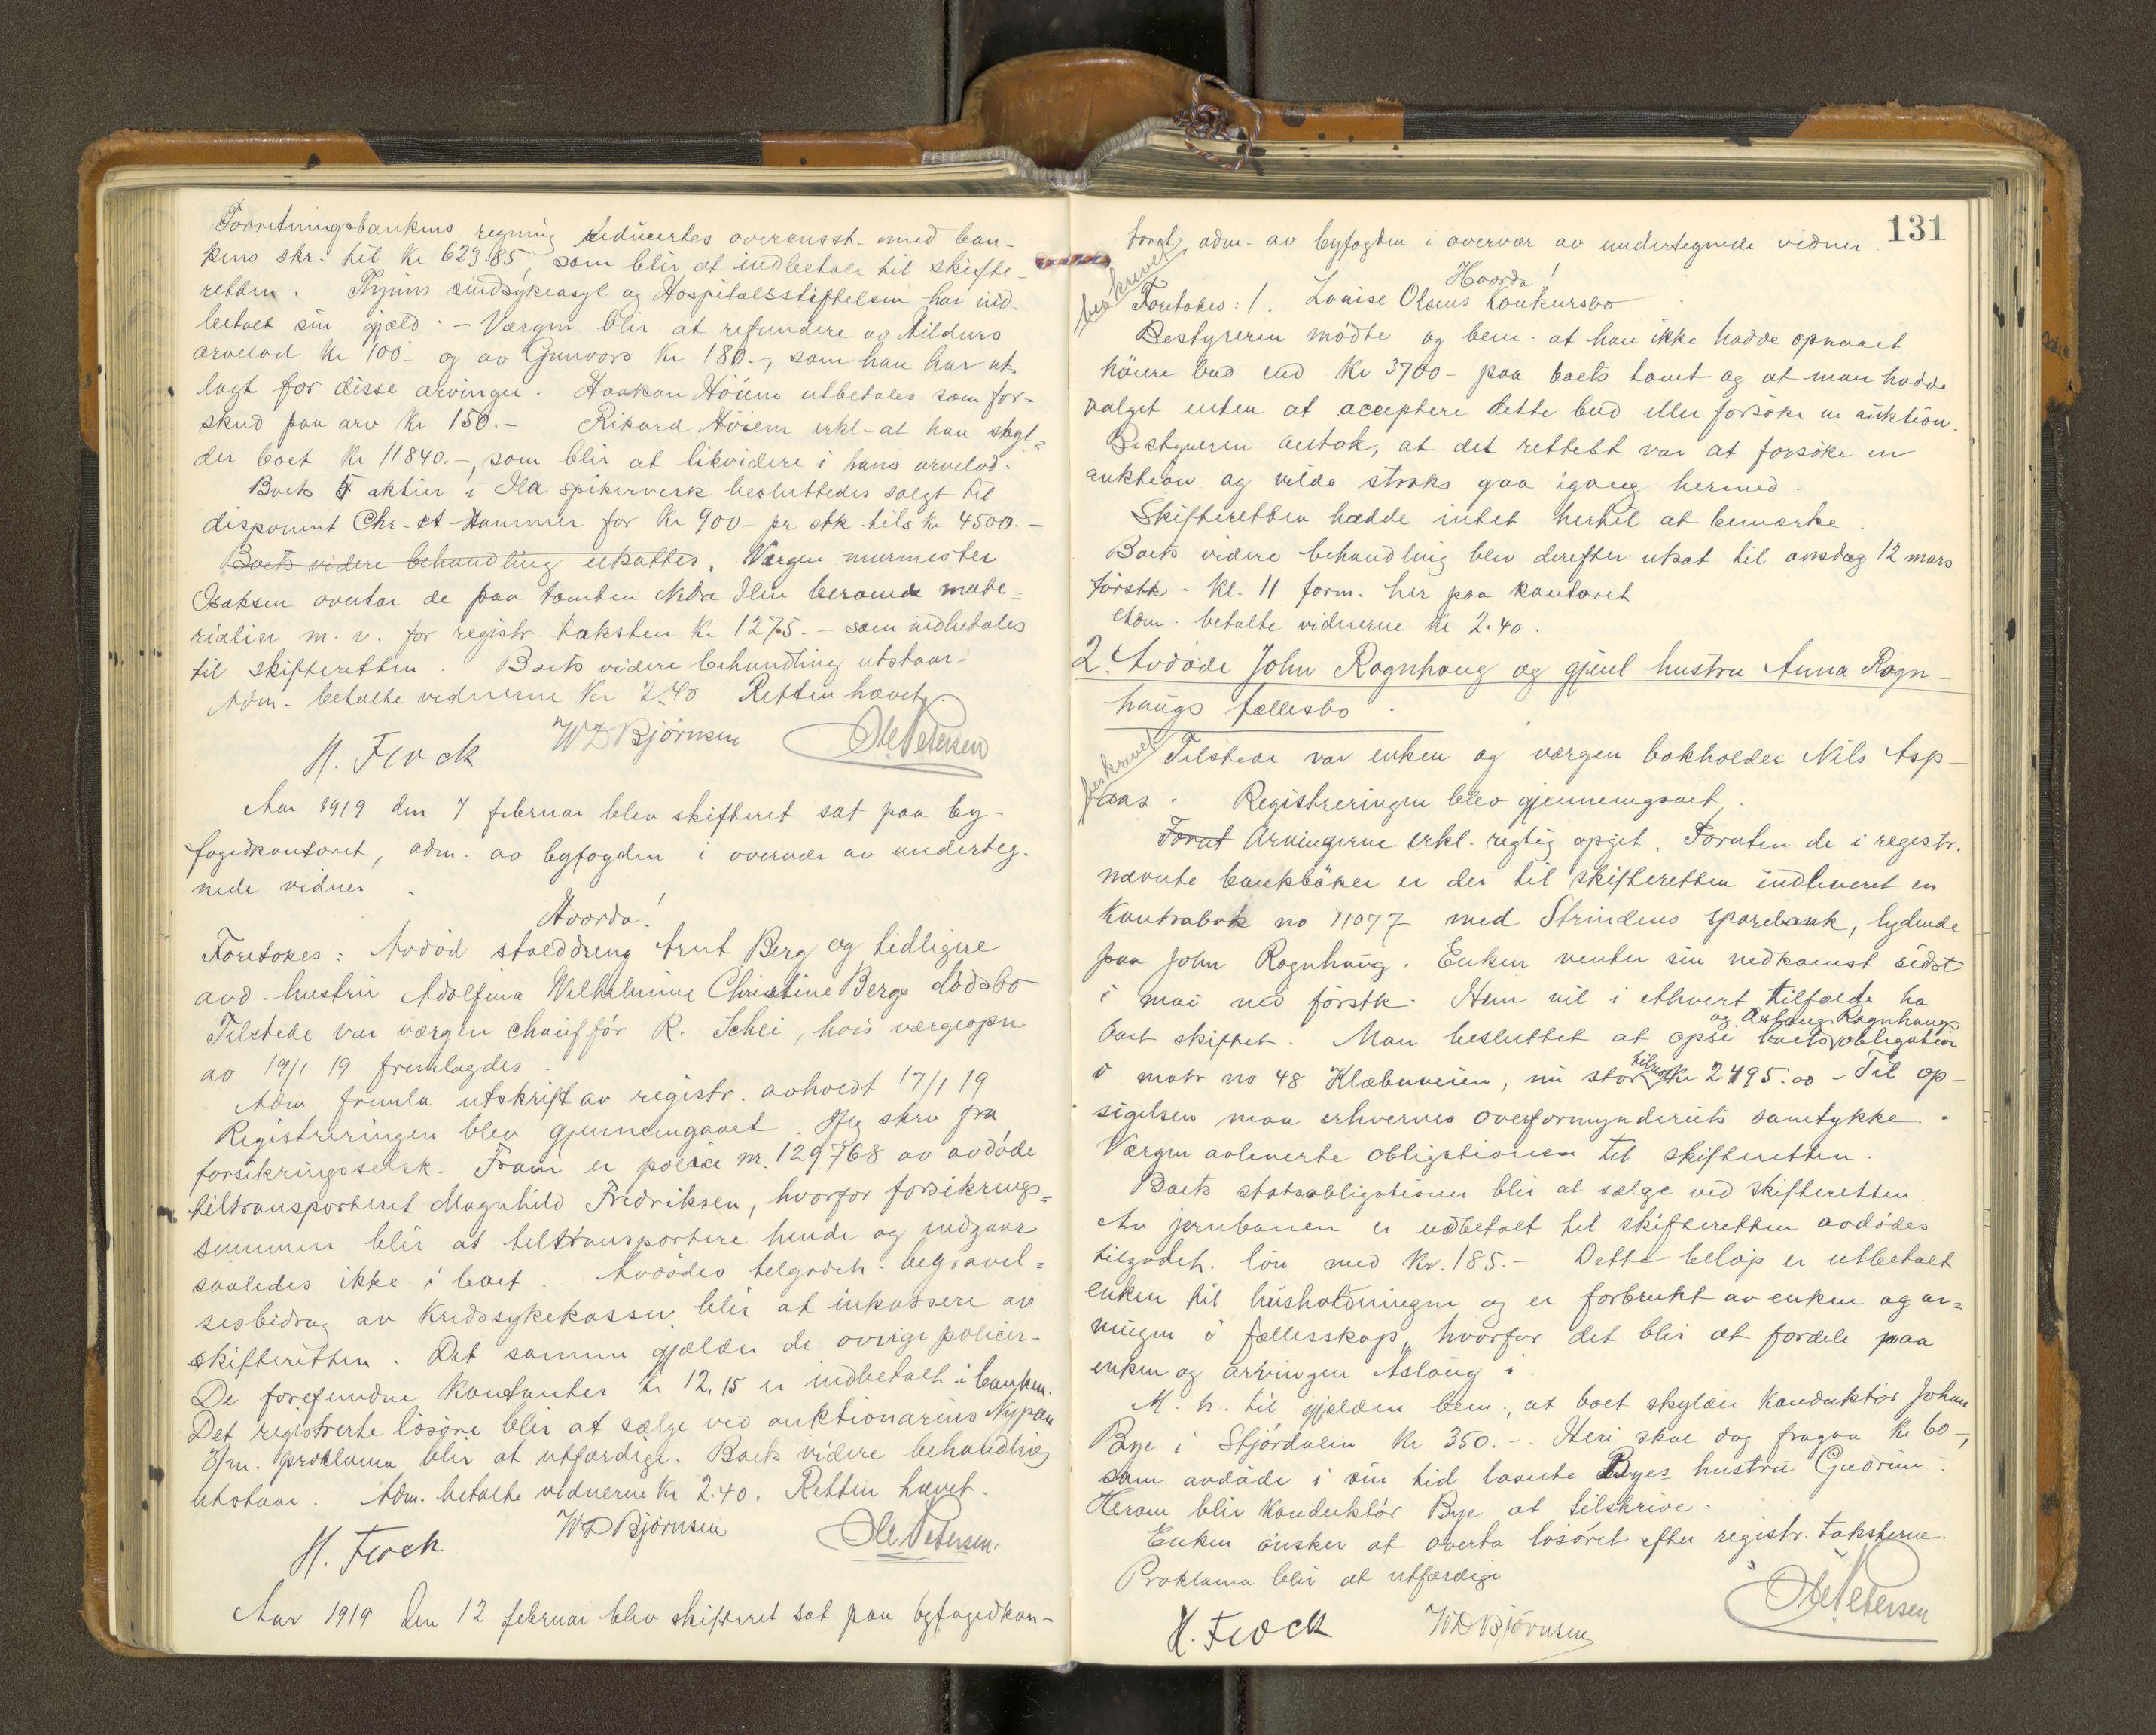 Forretningsbankens regning reducertes overensst. med ban-
kens skr. til kr 623.85, som blir at indbetale til skifte-
retten. Thjims sindsykeasyl og Hospitalsstiftelsen har ind-
betalt sin gjæld. - Værgen blir at refundere av Hildurs
arvelod kr 100.- og av Gunvors kr 180.-, som han har ut-
lagt for disse arvinger. Haakon Höiem utbetales som for-
skud paa arv kr 150.- Rikard Höiem erkl. at han skyl-
der boet kr 11840.-, som blir at likvidere i hans arvelod.
Boets 5 aktier i Ila spikerverk besluttedes solgt til
disponent Chr. A. Hammer for kr 900- pr stk. tils kr 4500.-
Boets videre behandling utsattes. Værgen murmester
Isaksen overtar de paa tomten Nedre Ilen beroende mate-
rialier m. v. for registr. taksten kr 1275.- som indbetales
til skifteretten. Boets videre behandling utstaar.
Adm. betalte vidnerne kr 2.40 Retten hævet.
H. Flock WDBjörnsen Ole Petersen
Aar 1919 den 7 februar blev skifteret sat paa by-
fogedkontoret, adm. av byfogden i overvær av underteg-
nede vidner.
Hvorda!
Foretokes: Avdöd stalddreng Arnt Berg og tidligere
avd. hustru Adolfina Wilhelmine Christine Bergs dödsbo
Tilstede var værgen chaufför R. Schei, hvis værgeopn
av 19/1 19 fremlagdes.
Adm. fremla utskrift av registr. avholdt 17/1 19
Registreringen blev gjennemgaaet. Iflg skrv fra
forsikringsselsk. Fram er police nr. 129768 av avdöde
tiltransporteret Magnhild Fredriksen, hvorfor forsikrings-
summen blir at tiltransportere hende og indgaar
saaledes ikke i boet. Avdödes tilgodeh. begravel-
sesbidrag av Kredssykekassen blir at inkassere av
skifteretten. Det samme gjælder de övrige policer.
De forefundne kontanter kr 12.15 er indbetalt i banken.
Det registrerte lösöre blir at sælge ved auktionarius Nypan
3/m. proklama blir at utfærdige. Boets videre behandling
utstaar. Adm. betalte vidnerne kr 2.40. Retten hævet.
H. Flock WDBjörnsen Ole Petersen.
Aar 1919 den 12 februar blev skifteret sat paa byfogedkon-
131
toret, adm. av byfogden i overvær av undertegnede vidner.
Hvorda!
beskrevet
Foretokes: 1. Louise Olsens konkursbo
Bestyreren mödte og bem. at han ikke hadde opnaaet
höiere bud end kr 3700- paa boets tomt og at man hadde
valget enten at acceptere dette bud eller forsöke en auktion.
Bestyreren antok, at det rettest var at forsöke en
auktion og vilde straks gaa igang hermed.
Skifteretten hadde intet hertil at bemærke.
Boets videre behandling blev derefter utsat til onsdag 12 mars
förstk. kl. 11 form. her paa kontoret
Adm. betalte vidnerne kr 2.40.
2. Avdöde John Rognhaug og gjenl hustru Anna Rogn-
haugs fællesbo.
beskrevet
Tilstede var enken og værgen bokholder Nils Asp-
aas. Registreringen blev gjennemgaaet.
Forut Arvingerne erkl. rigtig opgit. Foruten de i registr.
nævnte bankböker er der til skifteretten indleveret en
Kontrabok no 11077 med Strindens sparebank, lydende
paa John Rognhaug. Enken venter sin nedkomst sidst
i mai md förstk. Hun vil i ethvert tilfælde ha
og Aslaug Rognhaugs
boet skiftet. Man besluttet at opsi boets obligation
i matr no 48 Klæbuveien, nu stor tilsm kr 2495.00 - Til op-
sigelsen maa erhverves overformynderiets samtykke.
Værgen avleverte obligationen til skifteretten.
Boets statsobligationer blir at sælge ved skifteretten.
Av jernbanen er indbetalt til skifteretten avdödes
tilgodeh. lön med kr. 185.- Dette belöp er utbetalt
enken til husholdningen og er forbrukt av enken og ar-
vingen i fællesskap, hvorfor det blir at fordele paa
enken og arvingen Aslaug.
M. h. til gjælden bem., at boet skylder konduktör Johan
Bye i Stjördalen kr 350.-. Heri skal dog fragaa kr 60-,
som avdöde i sin tid laante Byes hustru Gudrun.
Herom blir konduktör Bye at tilskrive.
Enken önsker at overta lösöret efter registr. taksterne.
Proklama blir at utfærdige
H. Flock WDBjörnsen Ole Petersen